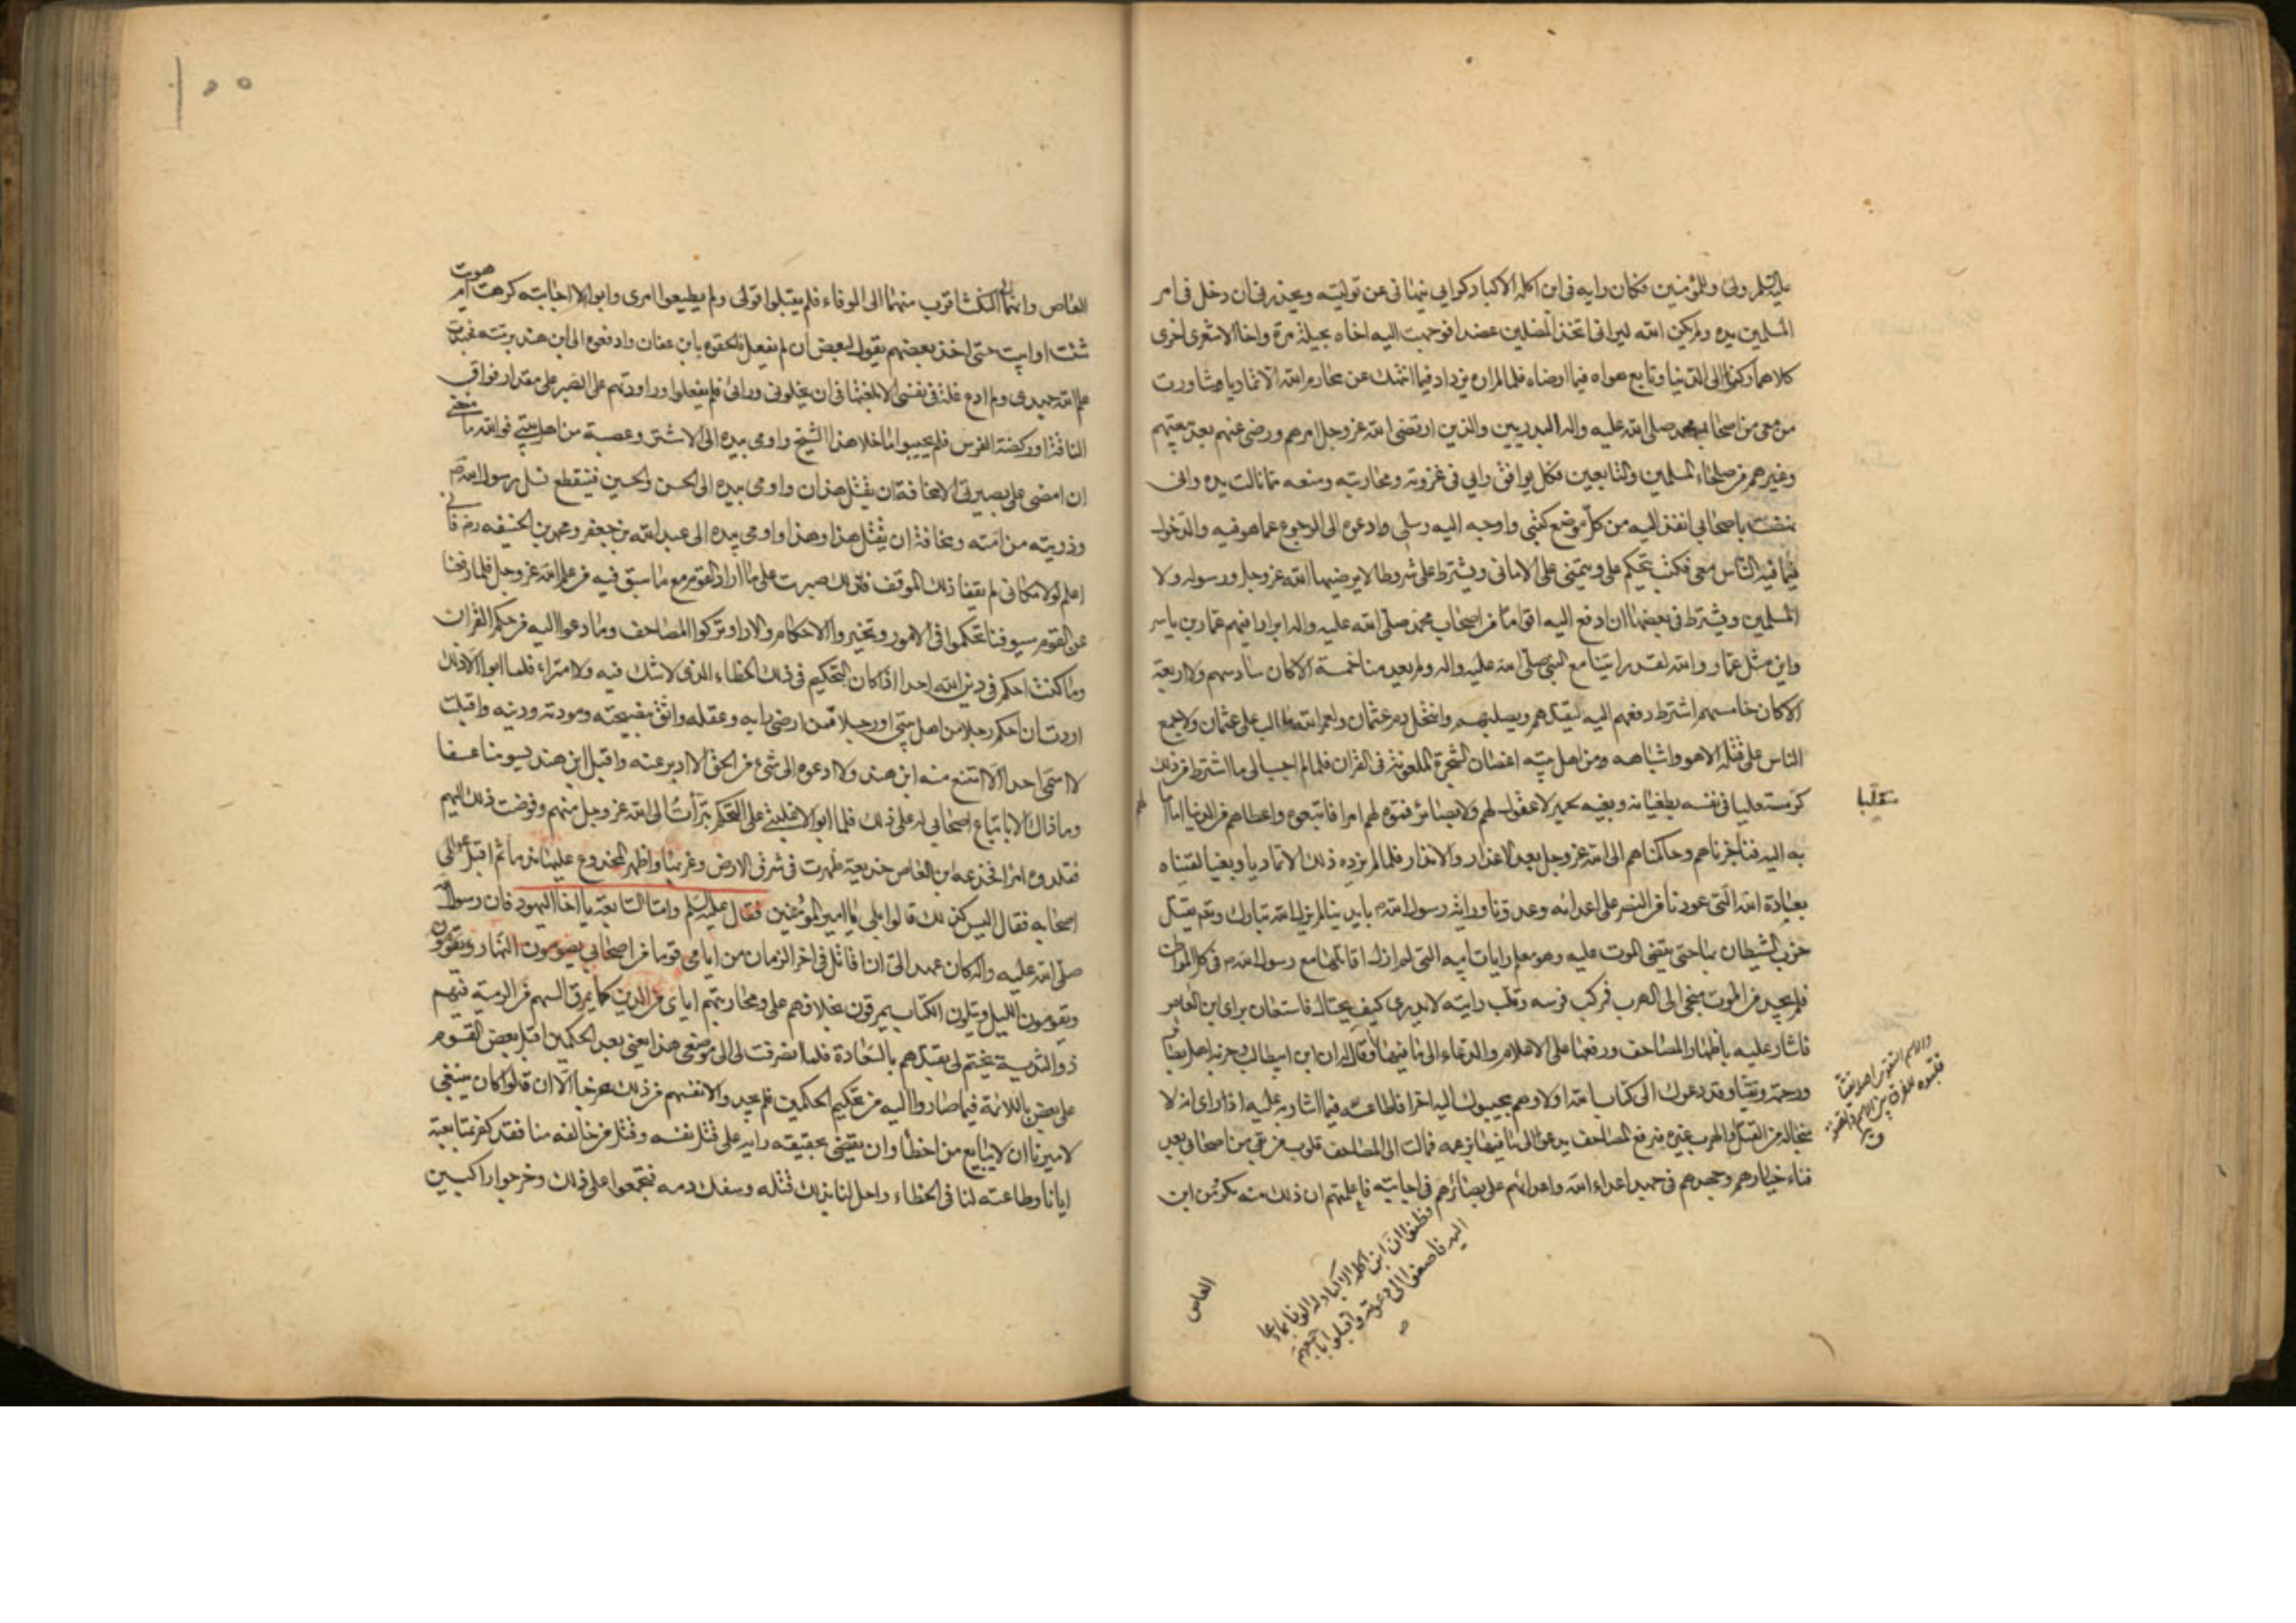 عليه السلم ولي وللمؤمنين فكان رايه في ابن اكلة الاكباد كرايي ينهاني عن توليته ويحذرني ان ادخل في امر
المسلمين يده ولم يكن الله ليراني اتخذ المضلين عضدا فوجهت اليه اخاه بجيلة مرة واخا الاشعري اخرى
كلاهما ركن الى الدنيا وتابع هواه فيما ارضاه فلما لم اره يزداد فيما انتهك عن محارم الله الا تماديا شاورت
من معي من اصحاب محمد صلى الله عليه واله البدريين والذين ارتضى الله عز وجل امرهم ورضي عنهم بعد بيعتهم
وغيرهم من صلحاء المسلمين والتابعين فكل يوافق رايه رايي في غزوته ومحاربته ومنعه مما نالت يده واني
نهضت باصحابي انفذ اليه من كل موضع كتبي واوجه اليه رسلي وادعوه الى الرجوع عما هو فيه والدخول
فيما فيه الناس معي فكتب يتحكم علي ويتمنى علي الاماني ويشترط علي شروطا لا يرضيها الله عز وجل ورسوله ولا
المسلمين ويشترط في بعضها ان ادفع اليه اقواما من اصحاب محمد صلى الله عليه واله ابرارا فيهم عمار بن ياسر
واين مثل عمار والله لقد رايتنا مع النبي صلى الله عليه واله وما يعد منا خمسة الا كان سادسهم ولا اربعة
الا كان خامسهم اشترط دفعهم اليه ليقتلهم ويصلبهم وانتحل دم عثمان ولعمر الله ما الب على عثمان ولا جمع
الناس على قتله الا هو واشباهه ومن اهل بيته اغصان الشجرة الملعونة في القران فلما لم اجب الى ما اشترط من ذلك
كر مستعليا في نفسه بطغيانه وبغيه بحمير لا عقول لهم ولا بصائر فموه لهم امرا فاتبعوه واعطاهم من الدنيا ما امالهم
به اليه فناجزناهم وحاكمناهم الى الله عز وجل بعد الاعذار والانذار فلما لم يزده ذلك الا تماديا وبغيا لقيناه
بعادة الله التي عودنا من النصر على اعدائه وعدونا وراية رسول الله بايدينا لم يزل الله تبارك وتعالى يقتل
حزب الشيطان بها حتى يقضي الموت عليه وهو معلم رايات ابيه التي لم ازل اقاتلها مع رسول الله في كل المواطن
فلم يجد من الموت منجى الا الهرب فركب فرسه وقلب رايته لا يدري كيف يحتال فاستعان براي ابن العاص
فاشار عليه باظهار المصاحف ورفعها على الاعلام والدعاء الى ما فيها وقال ان ابن ابي طالب وحزبه اهل بصائر
ورحمة وتقيا وقد دعوك الى كتاب الله اولا وهم مجيبوك اليه اخرا فاطاعه فيما اشار به عليه اذ راى انه لا
منجا له من القتل والهرب غيره فرفع المصاحف يدعو الى ما فيها بزعمه فمالت الى المصاحف قلوب من بقي من اصحابي بعد
فناء خيارهم وجهدهم في جهاد اعداء الله واعدائهم على بصائرهم في اجابته فاعلمتهم ان ذلك منه مكر ومن ابن
مستعليا
فظنوا ان ابن اكلة الاكباد له الوفا بما دعا
اليه فاصغوا الى دعوته واقبلوا باجمعهم
العاص
العاص وانهما الى النكث اقرب منهما الى الوفاء فلم يقبلوا قولي ولم يطيعوا امري وابوا الا اجابته كرهت ام هويت
شئت او ابيت حتى اخذ بعضهم يقول لبعض ان لم يفعل فالحقوه بابن عفان وادفعوه الى ابن هند برمته فجهدت
علم الله جهدي ولم ادع غلة في نفسي الا بلغتها في ان يخلوني ورائي فلم يفعلوا وراودتهم على الصبر على مقدار فواق
الناقة او ركضة الفرس فلم يجيبوا ما خلا هذا الشيخ واومى بيده الى الاشتر وعصبة من اهل بيتي فوالله ما منعني
ان امضي على بصيرتي الا مخافة ان يقتل هذان واومى بيده الى الحسن والحسين فينقطع نسل رسول الله ص
وذريته من امته ومخافة ان يقتل هذا وهذا واومى بيده الى عبد الله بن جعفر ومحمد بن الحنفيه رض فاني
اعلم لولا مكاني لم يقفا ذلك الموقف فلذلك صبرت على ما اراد القوم مع ما سبق فيه من علم الله عز وجل فلما رفعنا
عن القوم سيوفنا تحكموا في الامور وتخيروا الاحكام والاراء وتركوا المصاحف وما دعوا اليه من حكم القران
وما كنت احكم في دين الله احدا اذ كان التحكيم في ذلك الخطاء الذي لا شك فيه ولا امتراء فلما ابوا الا ذلك
اردت ان احكم رجلا من اهل بيتي او رجلا ممن ارضى رايه وعقله واثق بنصيحته ومودته ودينه واقبلت
لا اسمي احدا الا امتنع منه ابن هند ولا ادعوه الى شيء من الحق الا ادبر عنه واقبل ابن هند يسومنا عسفا
وما ذاك الا باتباع اصحابي له على ذلك فلما ابوا الا غلبتي على التحكم تبرأت الى الله عز وجل منهم وفوضت ذلك اليهم
فقلدوه امرا فخدعه ابن العاص خديعة ظهرت في شرق الارض وغربها واظهر المخدوع عليها ندما ثم اقبل على
اصحابه فقال اليس كذلك قالوا بلى يا امير المؤمنين فقال عليه السلم واما السابعة يا اخا اليهود فان رسول الله
صلى الله عليه واله كان عهد الي ان اقاتل في اخر الزمان من ايامي قوما من اصحابي يصومون النهار
ويقومون الليل ويتلون الكتاب يمرقون بخلافهم علي ومحاربتهم اياي من الدين كما يمرق السهم من الرمية فيهم
ذو الثدية يختم لي بقتلهم بالسعادة فلما انصرفت الى موضعي هذا يعني بعد الحكمين اقبل بعض القوم
على بعض باللائمة فيما صاروا اليه من تحكيم الحكمين فلم يجدوا لانفسهم من ذلك مخرجا الا ان قالوا كان ينبغي
لاميرنا ان لا يبايع من اخطأ وان يقضي بحقيقة رايه على قتل نفسه وقتل من خالفه منا فقد كفر بمتابعته
ايانا وطاعته لنا في الخطاء واحل لنا بذلك قتله وسفك دمه فتجمعوا على ذلك وخرجوا راكبين